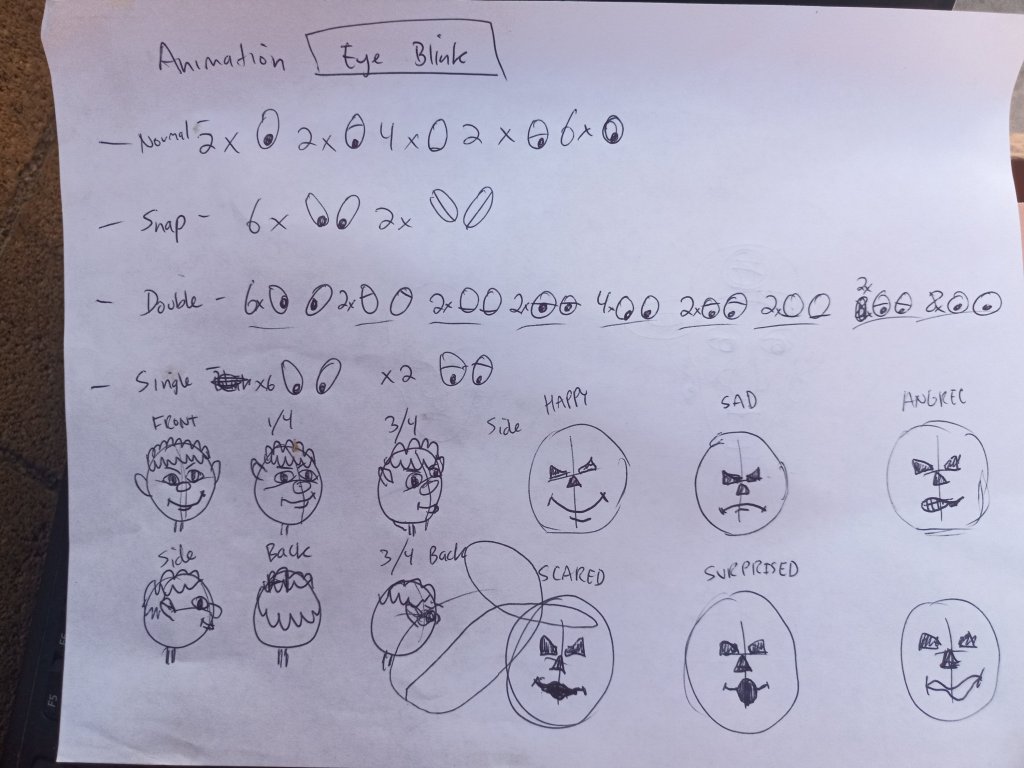 Animation Eye Blink
- Normal - 2x 2x 4x 2x 6x
- Snap - 6x 2x
- Double - 6x 2x 2x 2x 4x 2x 2x 2x 8x
- Single x6 x2
FRONT 1/4 3/4 Side HAPPY SAD ANGREE
Side Back 3/4 Back SCARED SURPRISED
F5